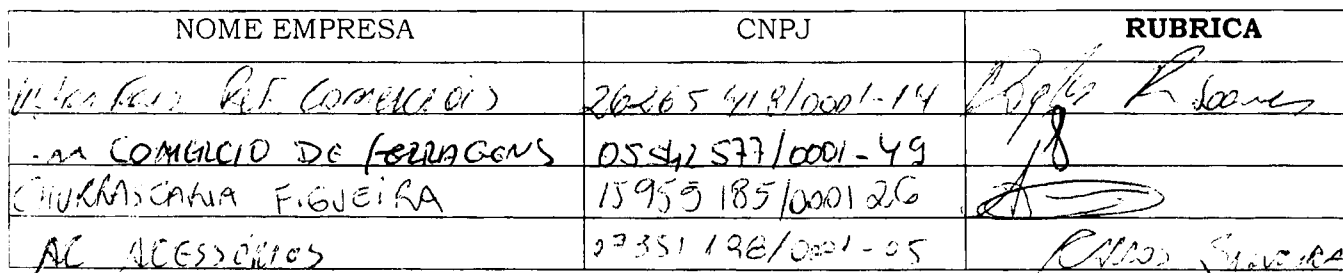 NOME EMPRESA CNPJ RUBRICA
Ref Comerciais 26265418/0001-14 Soares
M COMERCIO DE FERRAGENS 05542577/0001-49
CHURRASCARIA FIGUEIRA 15955185/0001 26
AC ACESSÓRIOS 07351198/0001-05 Silveira